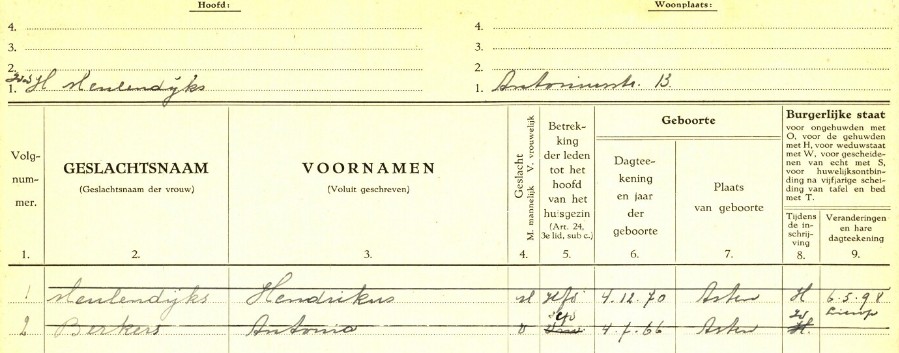 Hoofd: Woonplaats:
4. 4.
3. 3.
2. 2.
1. Wed H Meulendijks 1. Antoniusstr. 13.
Volg-
num-
mer.
GESLACHTSNAAM
(Geslachtsnaam der vrouw)
VOORNAMEN
(Voluit geschreven)
Geslacht
M. mannelijk V. vrouwelijk
Betrek-
king
der leden
tot het
hoofd
van het
huisgezin
(Art. 24,
3e lid, sub c.)
Geboorte
Dagtee-
kening
en jaar
der
geboorte
Plaats
van geboorte
Burgerlijke staat
voor ongehuwden met
O, voor de gehuwden
met H, voor weduwstaat
met W, voor gescheide-
nen van echt met S,
voor huwelijksontbin-
ding na vijfjarige schei-
ding van tafel en bed
met T.
Tijdens
de in-
schrij-
ving
Veranderingen
en hare
dagteekening
1. 2. 3. 4. 5. 6. 7. 8. 9.
1 Meulendijks Hendrikus M Hfd 4.12.70 Asten H 6.5.98
Hfd W Lierop
2 Berkers Antonia V 4.7.66 Asten H.